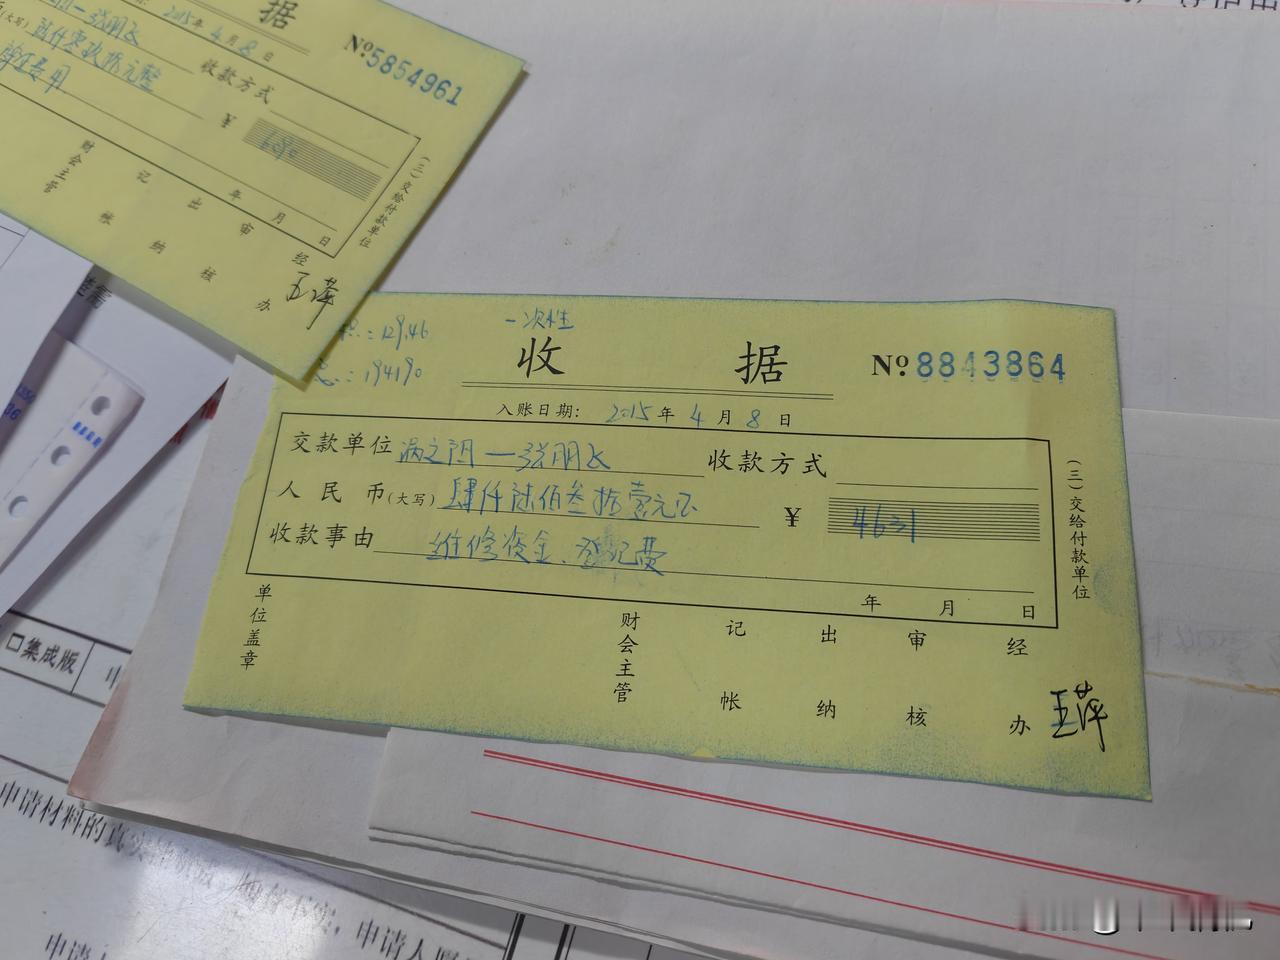 据
2015年4月8日
№5854961
张朋飞
收款方式
陆仟零玖拾元整
¥
6090
年 月 日
(三)交给付款单位
财会主管
记帐
出纳
审核
经办
王萍
一次性
:129.46
:194190
收 据
№8843864
入账日期: 2015年4月8日
交款单位 涡之阴—张朋飞 收款方式
人民币(大写) 肆仟陆佰叁拾壹元正 ¥ 4631
收款事由 维修资金、登记费
年 月 日
(三)交给付款单位
单位盖章
财会主管
记帐
出纳
审核
经办
王萍
集成版
申请材料的真实
申请人